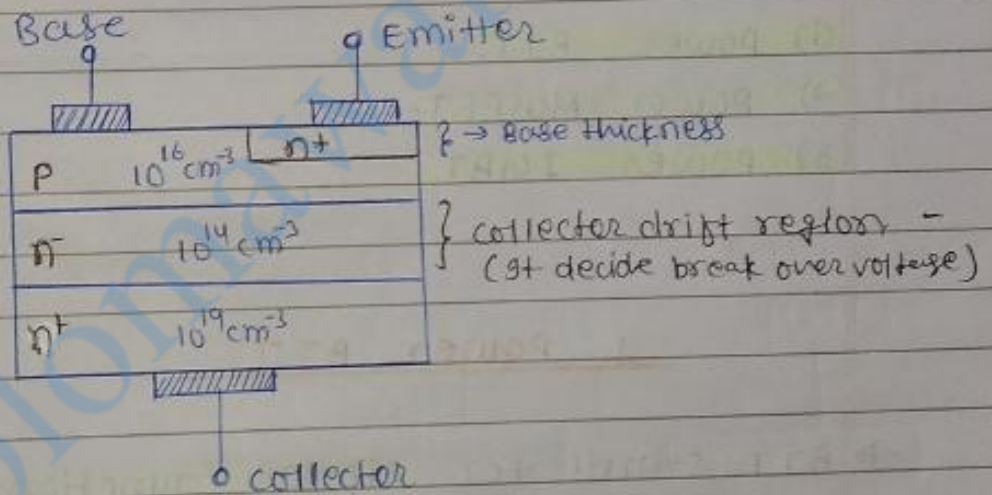 Base
Emitter
n+
} → Base thickness
P 10^16 cm^-3
n^- 10^14 cm^-3
} collector drift region -
(It decide break over voltage)
n^+ 10^19 cm^-3
collector